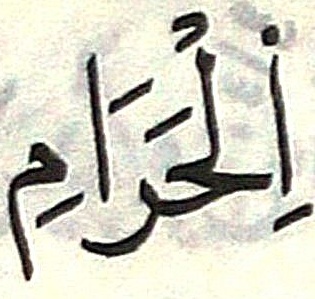 اِلْحَرَامِ